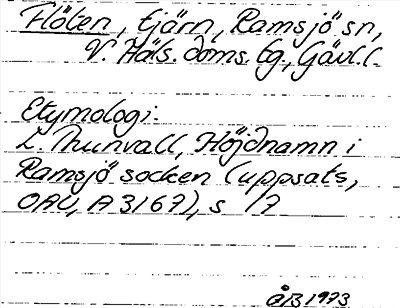 Flöten, tjärn, Ramsjö sn,
V. Häls. doms. tg., Gävl. l.
Etymologi:
L. Thunvall, Höjdnamn i
Ramsjö socken (uppsats,
OAU, A 3167), s 17
ÅB 1973